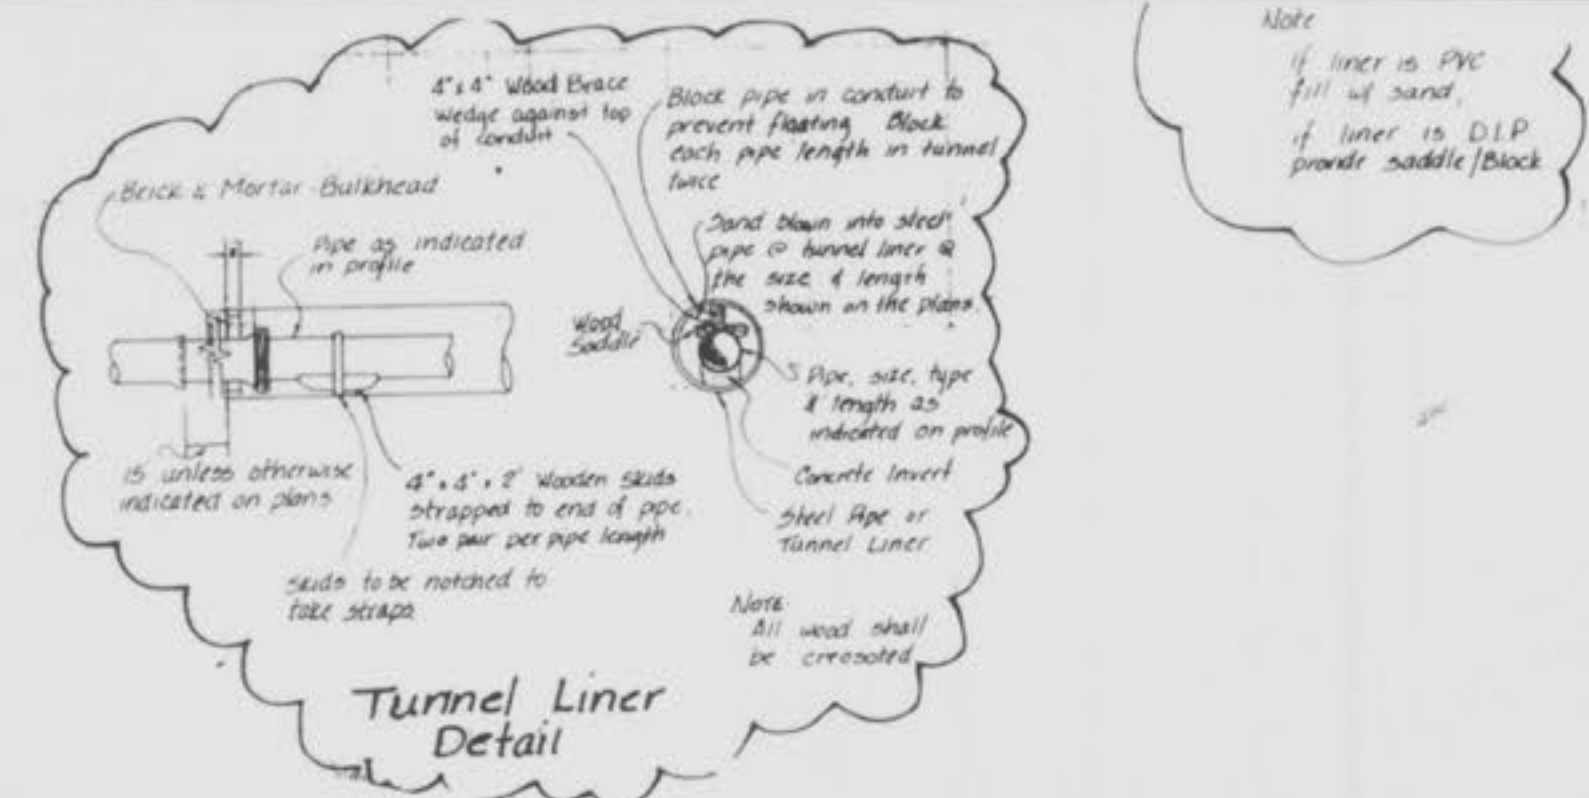 4" x 4" Wood Brace
wedge against top
of conduit
Block pipe in conduit to
prevent floating Block
each pipe length in tunnel
twice
Brick & Mortar Bulkhead
Pipe as indicated
in profile
Sand blown into steel
pipe @ tunnel liner @
the size & length
shown on the plans
Wood
Saddle
Pipe, size, type
& length as
indicated on profile
Concrete Invert
Steel Pipe or
Tunnel Liner
15 unless otherwise
indicated on plans
4" x 4" x 2' Wooden Skids
strapped to end of pipe.
Two pair per pipe length
Skids to be notched to
take straps
Note
All wood shall
be creosoted
Tunnel Liner
Detail
Note
if liner is PVC
fill w/ sand,
if liner is D.I.P
provide saddle/Block